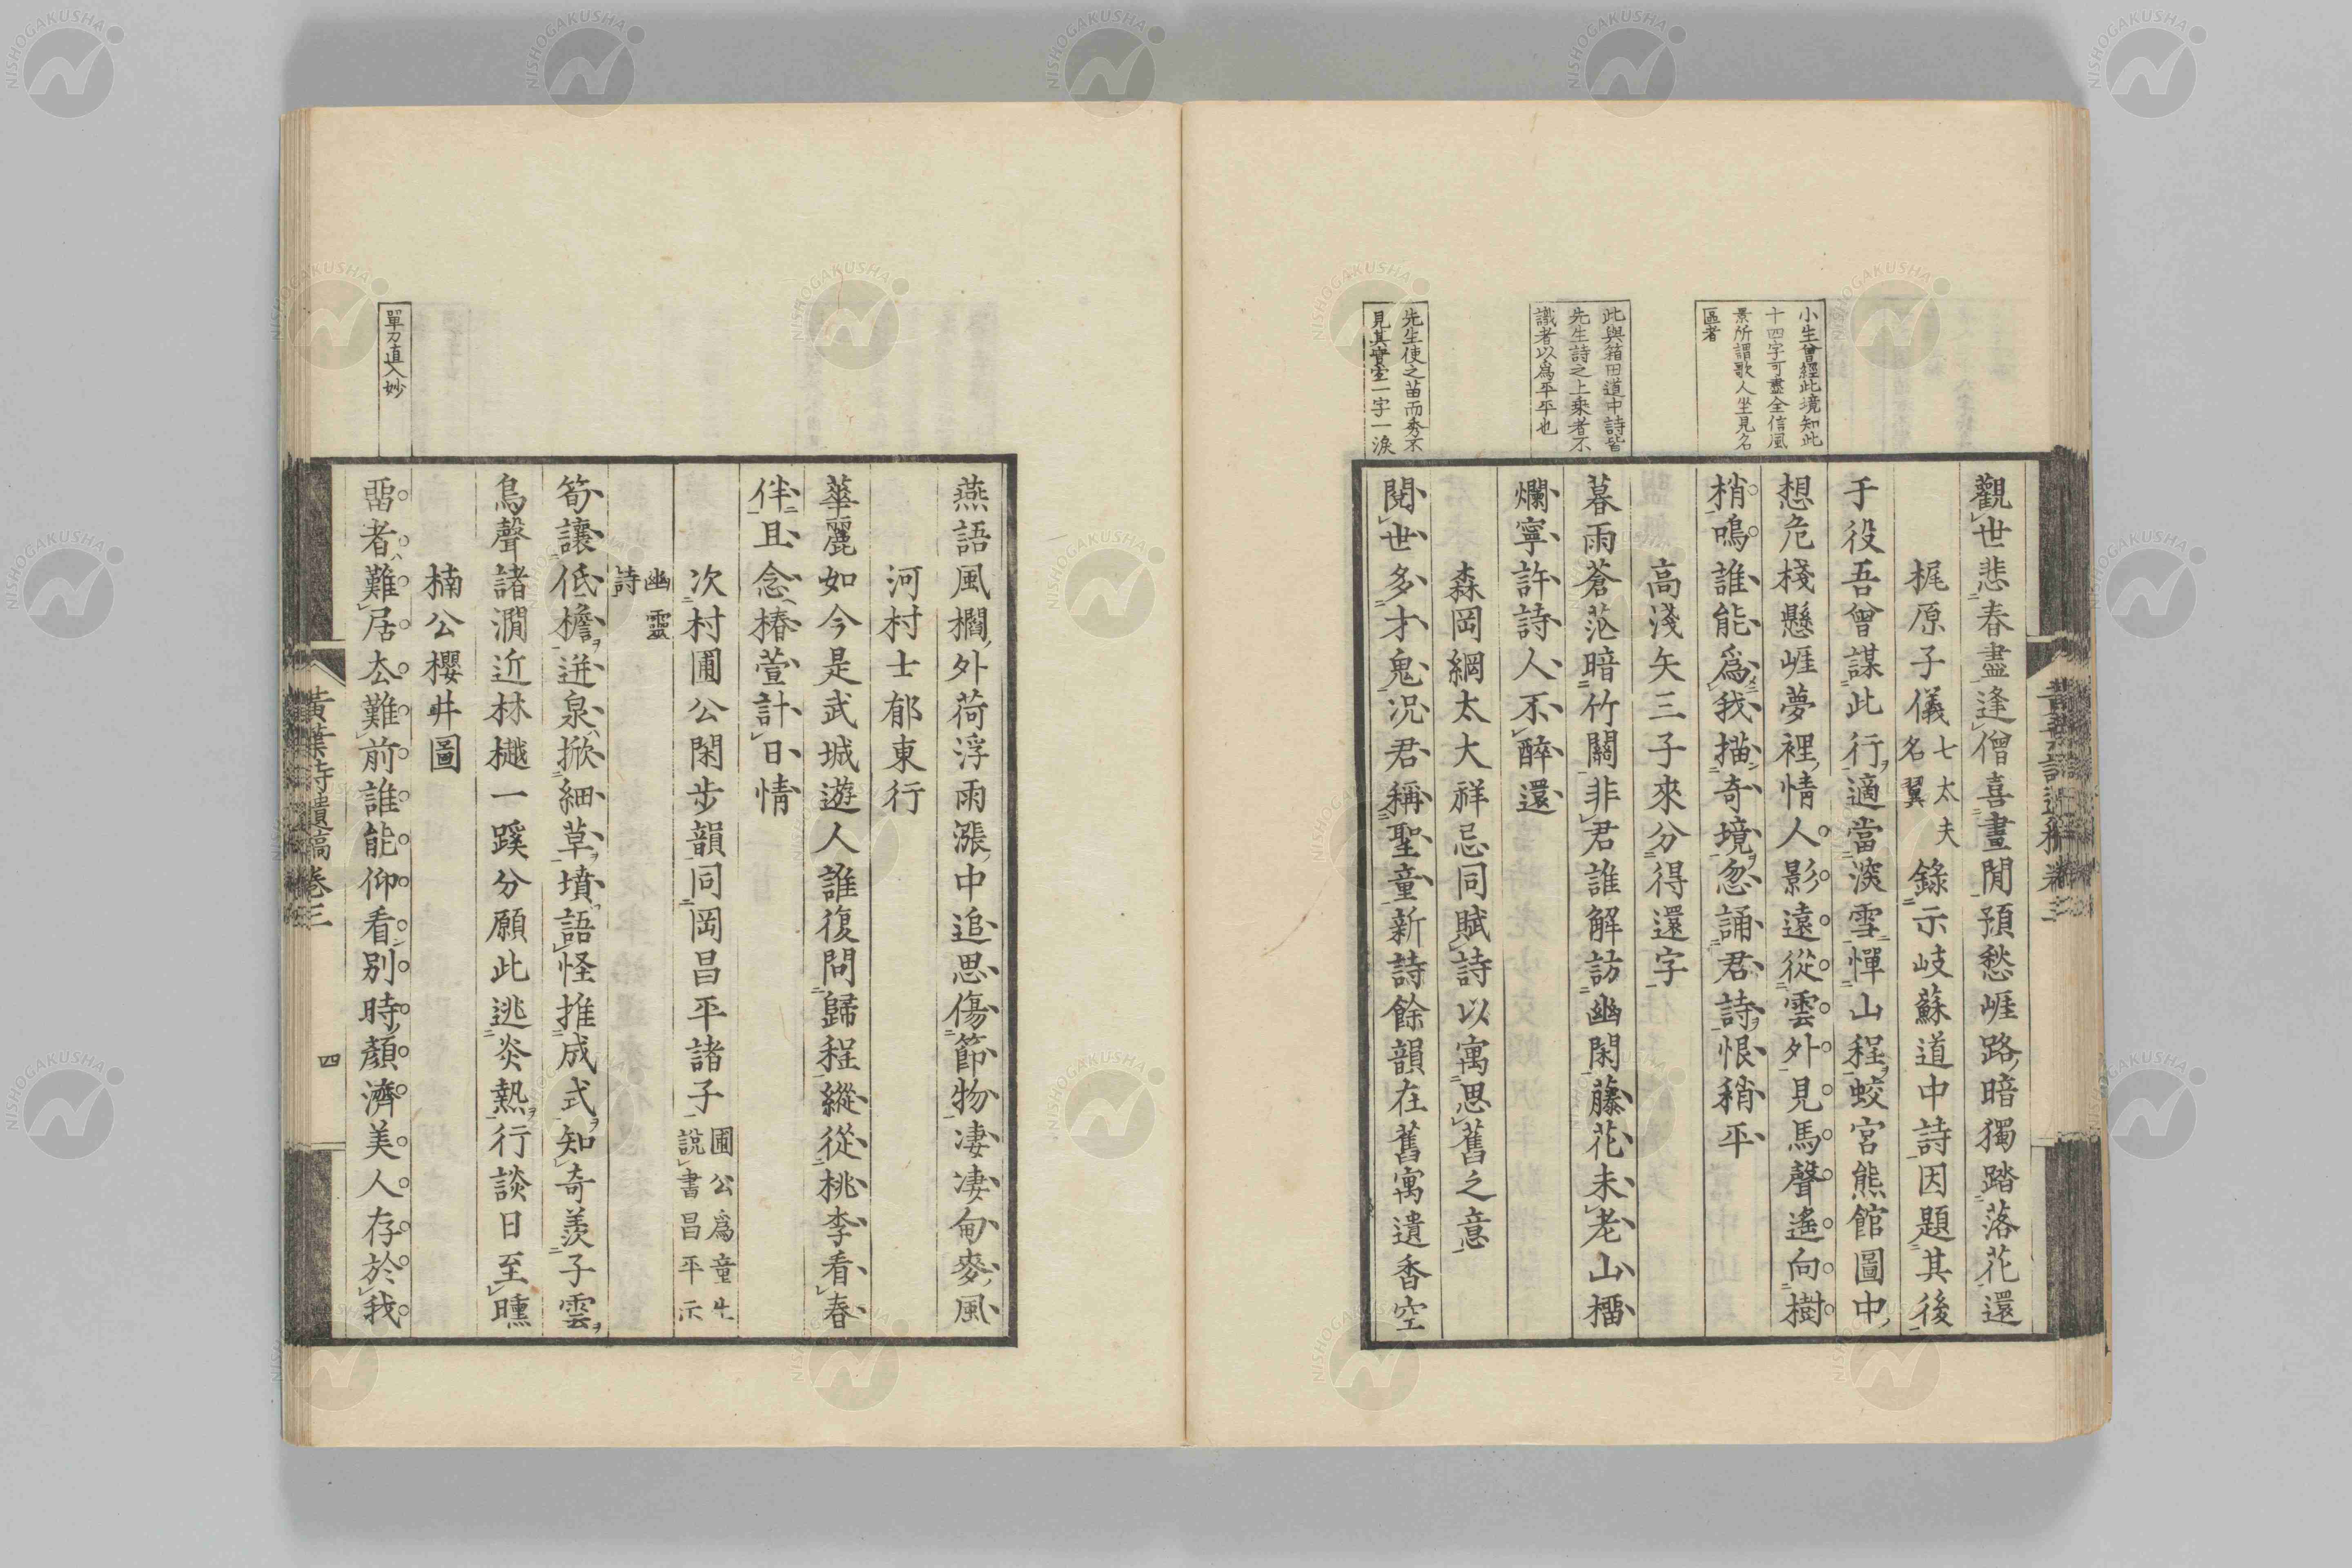 小生曾經此境知此
十四字可盡全信風
景所謂歌人坐見名
區者
此與箱田道中詩皆
先生詩之上乘者不
識者以爲平平也
先生使之苗而秀不
見其實室一字一淚
觀世悲春盡逢僧喜晝閒預愁崕路暗獨踏落花還
梶原子儀七太夫名翼錄示岐蘇道中詩因題其後
于役吾曾謀此行適當深雪憚山程蛟宮熊館圖中
想危棧懸崕夢裡情人影遠從雲外見馬聲遙向樹
梢鳴誰能爲我描奇境忽誦君詩恨稍平
高淺矢三子來分得還字
暮雨蒼茫暗竹關非君誰解訪幽閑藤花未老山櫑
爛寧許詩人不醉還
森岡綱太大祥忌同賦詩以寓思舊之意
閱世多才鬼況君稱聖童新詩餘韻在舊寓遺香空
燕語風櫩外荷浮雨漲中追思傷節物凄凄旬麥風
河村士郁東行
華麗如今是武城遊人誰復問歸程縱從桃李看春
伴且念椿萱計日情
次村圃公閑步韻同岡昌平諸子圃公爲童生說書昌平示
幽靈詩
筍讓低檐迸泉掀細草墳語怪推成式知奇羨子雲
鳥聲諸澗近林樾一蹊分願此逃炎熱行談日至曛
楠公櫻井圖
畱者難居厺難前誰能仰看別時顏濟美人存於我
單刀直入妙
黃葉詩遺稿卷三
四
NISHOGAKUSHA